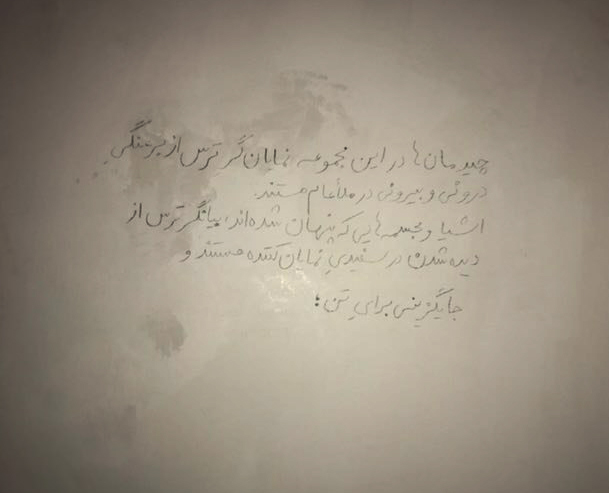 چیدمان‌ها در این مجموعه نمایان‌گر ترس از برهنگی
درونی و بیرونی در ملأعام هستند.
اشیا و مجسمه‌هایی که پنهان شده‌اند، بیانگر ترس از
دیده شدن در سفیدیِ نمایان‌کننده هستند و
جایگزینی برای تن؛